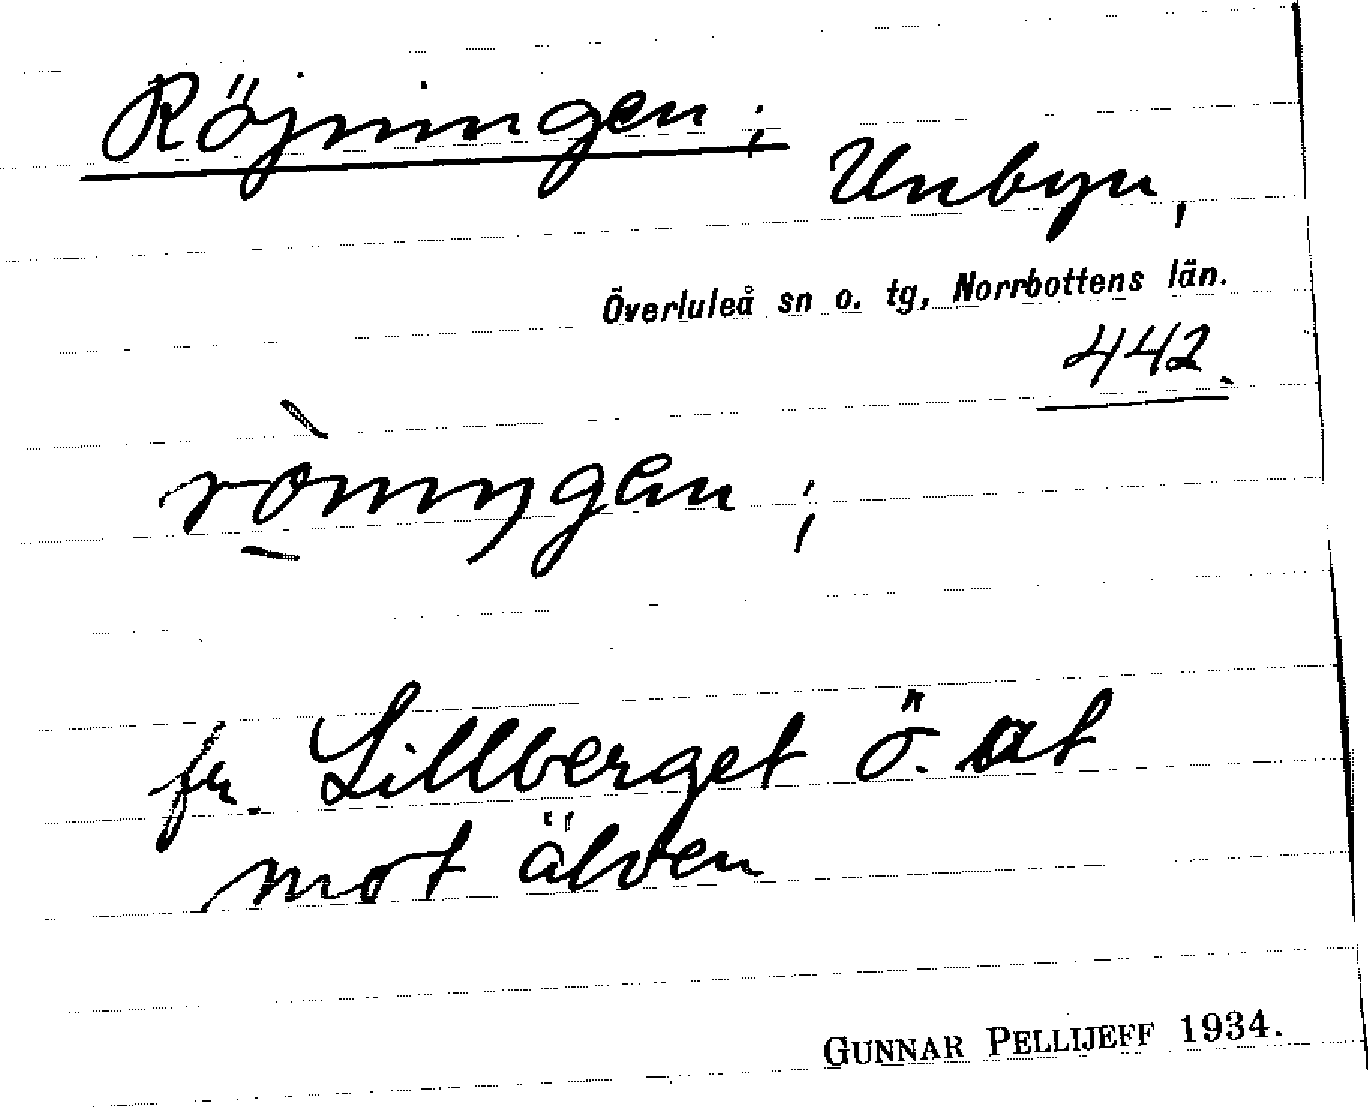 Röjningen;
Unbyn,
Överluleå sn o. tg, Norrbottens län.
442.
rò̱niŋgen;
fr. Lillberget ö. ut
mot älven
GUNNAR PELLIJEFF 1934.